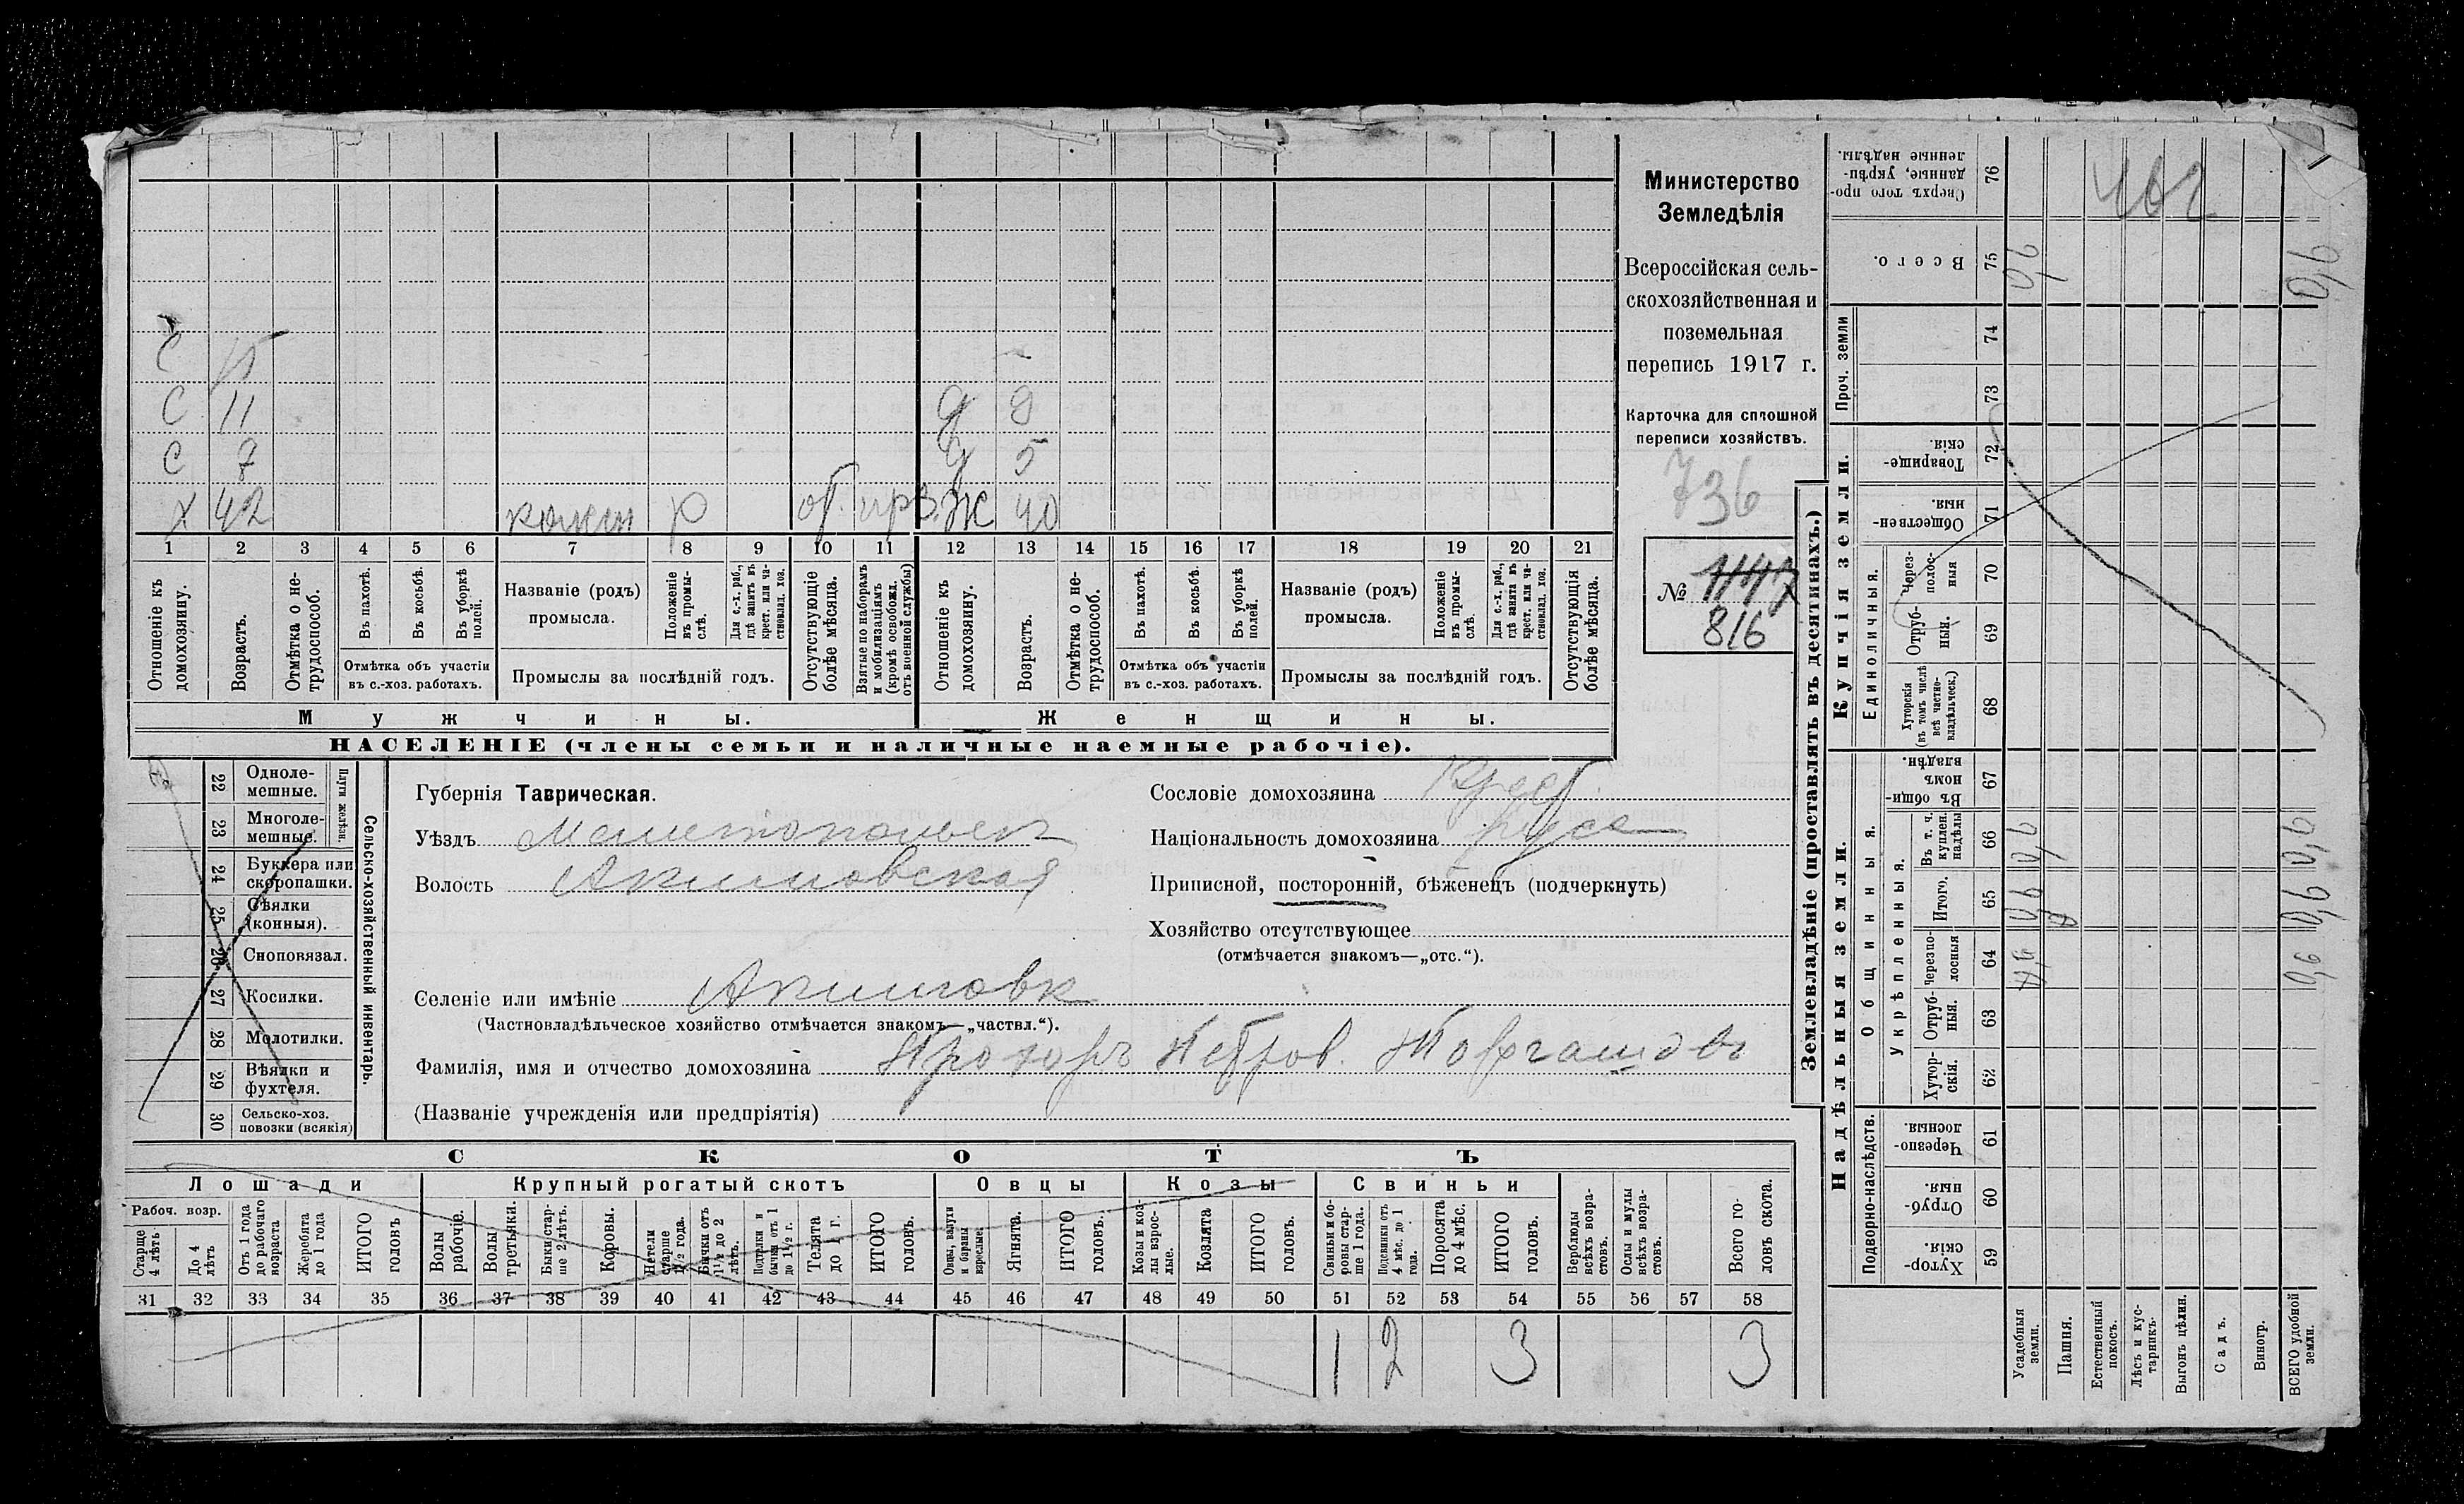 С 15
С 11 Д 9
С 7 Д 5
Х 42 Р от. приз. Ж 40
1 2 3 4 5 6 7 8 9 10 11 12 13 14 15 16 17 18 19 20 21
Отношеніе къ домохозяину.
Возрастъ.
Отмѣтка о не-
трудоспособ.
Въ пахотѣ.
Въ косьбѣ.
Въ уборкѣ
полей.
Отмѣтка объ участіи
въ с.-хоз. работахъ.
Названіе (родъ)
промысла.
Положеніе
въ промы-
слѣ.
Для с.-х. раб.,
гдѣ занятъ въ
крест. или ча-
стновлад. хоз.
Промыслы за послѣдній годъ.
Отсутствующіе
болѣе мѣсяца.
Взятые по наборамъ
и мобилизаціямъ
(кромѣ освобожд.
отъ военной службы)
Отношеніе къ
домохозяину.
Возрастъ.
Отмѣтка о не-
трудоспособ.
Въ пахотѣ.
Въ косьбѣ.
Въ уборкѣ
полей.
Отмѣтка объ участіи
въ с.-хоз. работахъ.
Названіе (родъ)
промысла.
Положеніе
въ промы-
слѣ.
Для с.-х. раб.,
гдѣ занята въ
крест. или ча-
стновлад. хоз.
Промыслы за послѣдній годъ.
Отсутствующія
болѣе мѣсяца.
Мужчины. Женщины.
НАСЕЛЕНІЕ (члены семьи и наличные наемные рабочіе).
Министерство
Земледѣлія
Всероссійская сель-
скохозяйственная и
поземельная
перепись 1917 г.
Карточка для сплошной
переписи хозяйствъ.
736
№ 1147
816
22 Одноле-
мешные.
23 Многоле-
мешные.
Плуги желѣзн.
24 Буккера или
скоропашки.
25 Сѣялки
(конныя).
26 Сноповязал.
27 Косилки.
28 Молотилки.
29 Вѣялки и
фухтеля.
30 Сельско-хоз.
повозки (всякія)
Сельско-хозяйственный инвентарь.
Губернія Таврическая.
Уѣздъ Мелитопольск
Волость Акимовская
Сословіе домохозяина Крест.
Національность домохозяина русс
Приписной, посторонній, бѣженецъ (подчеркнуть)
Хозяйство отсутствующее
(отмѣчается знакомъ—„отс.“).
Селеніе или имѣніе Акимовк
(Частновладѣльческое хозяйство отмѣчается знакомъ—„частвл.“).
Фамилія, имя и отчество домохозяина Прохоръ Петров. Торгашовъ
(Названіе учрежденія или предпріятія)
СКОТЪ
Лошади Крупный рогатый скотъ Овцы Козы Свиньи
Рабоч. возр.
Старше
4 лѣтъ
До 4
лѣтъ
Отъ 1 года
до рабочаго
возраста
Жеребята
до 1 года
ИТОГО
головъ
Волы
рабочіе.
Волы
третьяки.
Быки стар-
ше 2 лѣтъ.
Коровы.
Нетели
старше
1½ года.
Бычки отъ
1½ до 2
лѣтъ.
Подтелки и
бычки отъ 1
до 1½ г.
Телята
до 1 г.
ИТОГО
головъ.
Овцы, валухи
и бараны
взрослые.
Ягнята.
ИТОГО
головъ.
Козы и коз-
лы взрос-
лые.
Козлята
ИТОГО
головъ.
Свиньи и бо-
ровы стар-
ше 1 года.
Подсвинки отъ
4 мѣс. до 1
года.
Поросята
до 4 мѣс.
ИТОГО
головъ.
Верблюды
всѣхъ возра-
стовъ.
Ослы и мулы
всѣхъ возра-
стовъ.
Всего го-
ловъ скота.
31 32 33 34 35 36 37 38 39 40 41 42 43 44 45 46 47 48 49 50 51 52 53 54 55 56 57 58
1 2 3 3
Землевладѣніе (проставлять въ десятинахъ.)
Купчія земли.
Надѣльныя земли.
Сверхъ того про-
данные, укрѣп-
ленные надѣлы.
76
Всего.
75
Проч. земли
74
73
Товарище-
скія.
72
Обществен-
ныя.
71
Единоличныя.
Через-
полос-
ныя
70
Отруб-
ныя.
69
Хуторскія
(въ томъ числѣ
всѣ частно-
владѣльческ.)
68
Общинныя.
Въ общи-
номъ
владѣн.
67
Укрѣпленныя.
Въ т. ч.
куплен.
надѣлы
66
Итого.
65
Черезпо-
лосныя
64
Отруб-
ныя.
63
Хутор-
скія.
62
Подворно-наслѣдств.
Черезпо-
лосныя.
61
Отруб-
ныя.
60
Хутор-
скія.
59
Усадебныя
земли.
Пашня.
Естественный
покосъ.
Лѣсъ и кус-
тарникъ.
Выгонъ цѣлин.
Садъ.
Виногр.
ВСЕГО удобной
земли.